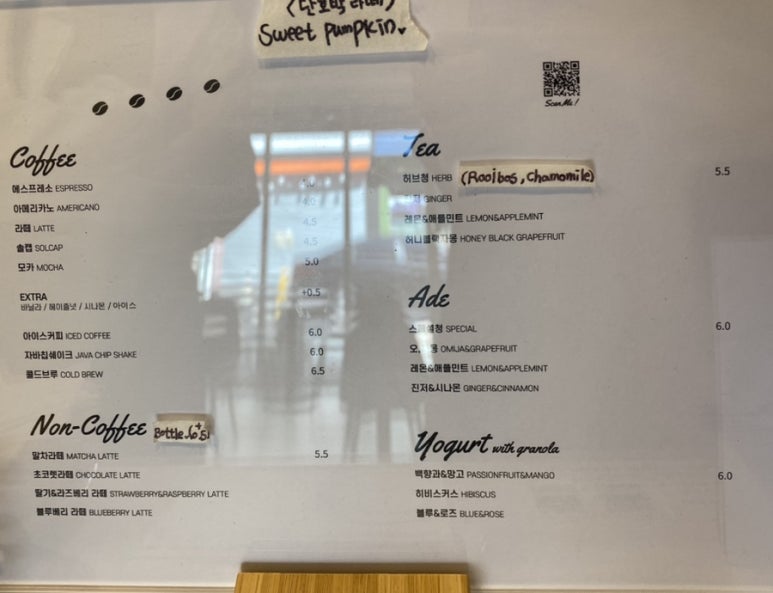 (단호박 라떼)
Sweet pumpkin.
Scan Me!
Coffee
에스프레소 ESPRESSO 4.0
아메리카노 AMERICANO 4.0
라떼 LATTE 4.5
솔캡 SOLCAP 4.5
모카 MOCHA 5.0
EXTRA +0.5
바닐라 / 헤이즐넛 / 시나몬 / 아이스
아이스커피 ICED COFFEE 6.0
자바칩쉐이크 JAVA CHIP SHAKE 6.0
콜드브루 COLD BREW 6.5
Non-Coffee
말차라떼 MATCHA LATTE 5.5
초코렛라떼 CHOCOLATE LATTE
딸기&라즈베리 라떼 STRAWBERRY&RASPBERRY LATTE
블루베리 라떼 BLUEBERRY LATTE
Tea
허브청 HERB (Rooibos, Chamomile) 5.5
GINGER
레몬&애플민트 LEMON&APPLEMINT
허니블랙자몽 HONEY BLACK GRAPEFRUIT
Ade
SPECIAL 6.0
OMIJA&GRAPEFRUIT
레몬&애플민트 LEMON&APPLEMINT
진저&시나몬 GINGER&CINNAMON
Yogurt with granola
백향과&망고 PASSIONFRUIT&MANGO 6.0
히비스커스 HIBISCUS
블루&로즈 BLUE&ROSE